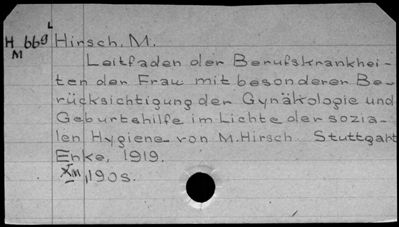 L
H 669 Hirsch, M.
M
Leitfaden der Berufskrankhei-
ten der Frau mit besonderer Be-
rücksichtigung der Gynäkologie und
Geburtshilfe im Lichte der sozia-
len Hygiene von M. Hirsch. Stuttgart
Enke, 1919.
190s.